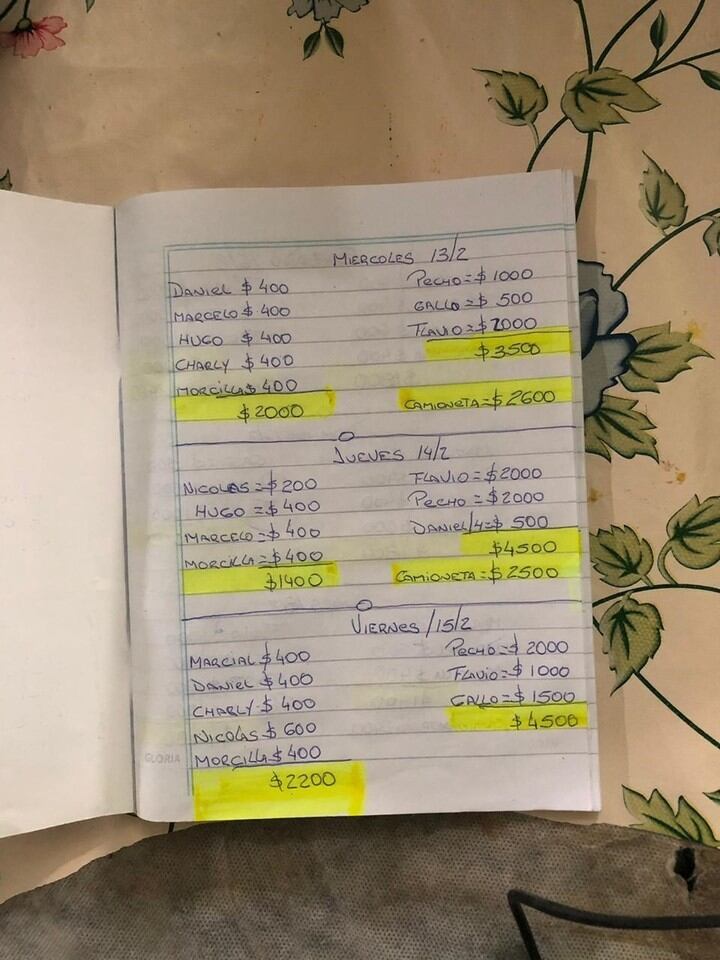 MIERCOLES 13/2
DANIEL $ 400
MARCELO $ 400
HUGO $ 400
CHARLY $ 400
MORCILLA $ 400
$ 2000
PECHO = $ 1000
GALLO = $ 500
FLAVIO = $ 2000
$ 3500
CAMIONETA = $ 2600
JUEVES 14/2
NICOLAS = $ 200
HUGO = $ 400
MARCELO = $ 400
MORCILLA = $ 400
$ 1400
FLAVIO = $ 2000
PECHO = $ 2000
DANIEL/4 = $ 500
$ 4500
CAMIONETA = $ 2500
VIERNES /15/2
MARCIAL $ 400
DANIEL $ 400
CHARLY $ 400
NICOLAS $ 600
MORCILLA $ 400
$ 2200
PECHO = $ 2000
FLAVIO = $ 1000
GALLO = $ 1500
$ 4500
GLORIA